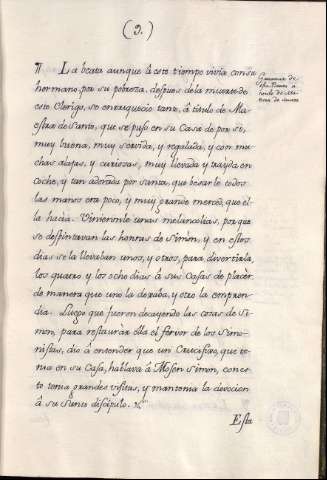 (9.)
¶ La beata aunque â este tiempo vivia con su
hermano, por su pobreza, despues de la muerte de
este Clerigo, se enriqueciò tanto, â titulo de Ma-
estra de Santo, que se puso en su Casa de por sì,
muy buena, muy servida, y regalada, y con mu-
chas alajas, y curiosas, muy llevada y trayda en
coche, y tan adorada por santa, que besarle todos
las manos era poco, y muy grande merced, que el-
la hacia. Vinieronle unas melancolias, porque
se despintavan las honrras de Simòn, y en estos
dias se la llevaban unos, y otros, para divertirla,
los quatro, y los ocho dias â sus Casas de placèr,
de manera que uno la dexaba, y otro la empren-
dia. Luego que fueron decayendo las cosas de Si-
mon, para restaurar ella el fervor de los Simo-
nistas, diò â entender que un Crucifixo, que te-
nia en su Casa, hablava â Mosen Simon, con es-
to tenia grandes visitas, y mantenia la devocion
â su Santo discipulo.
de
esta Beata a
titulo de Ma-
estra de
Esta